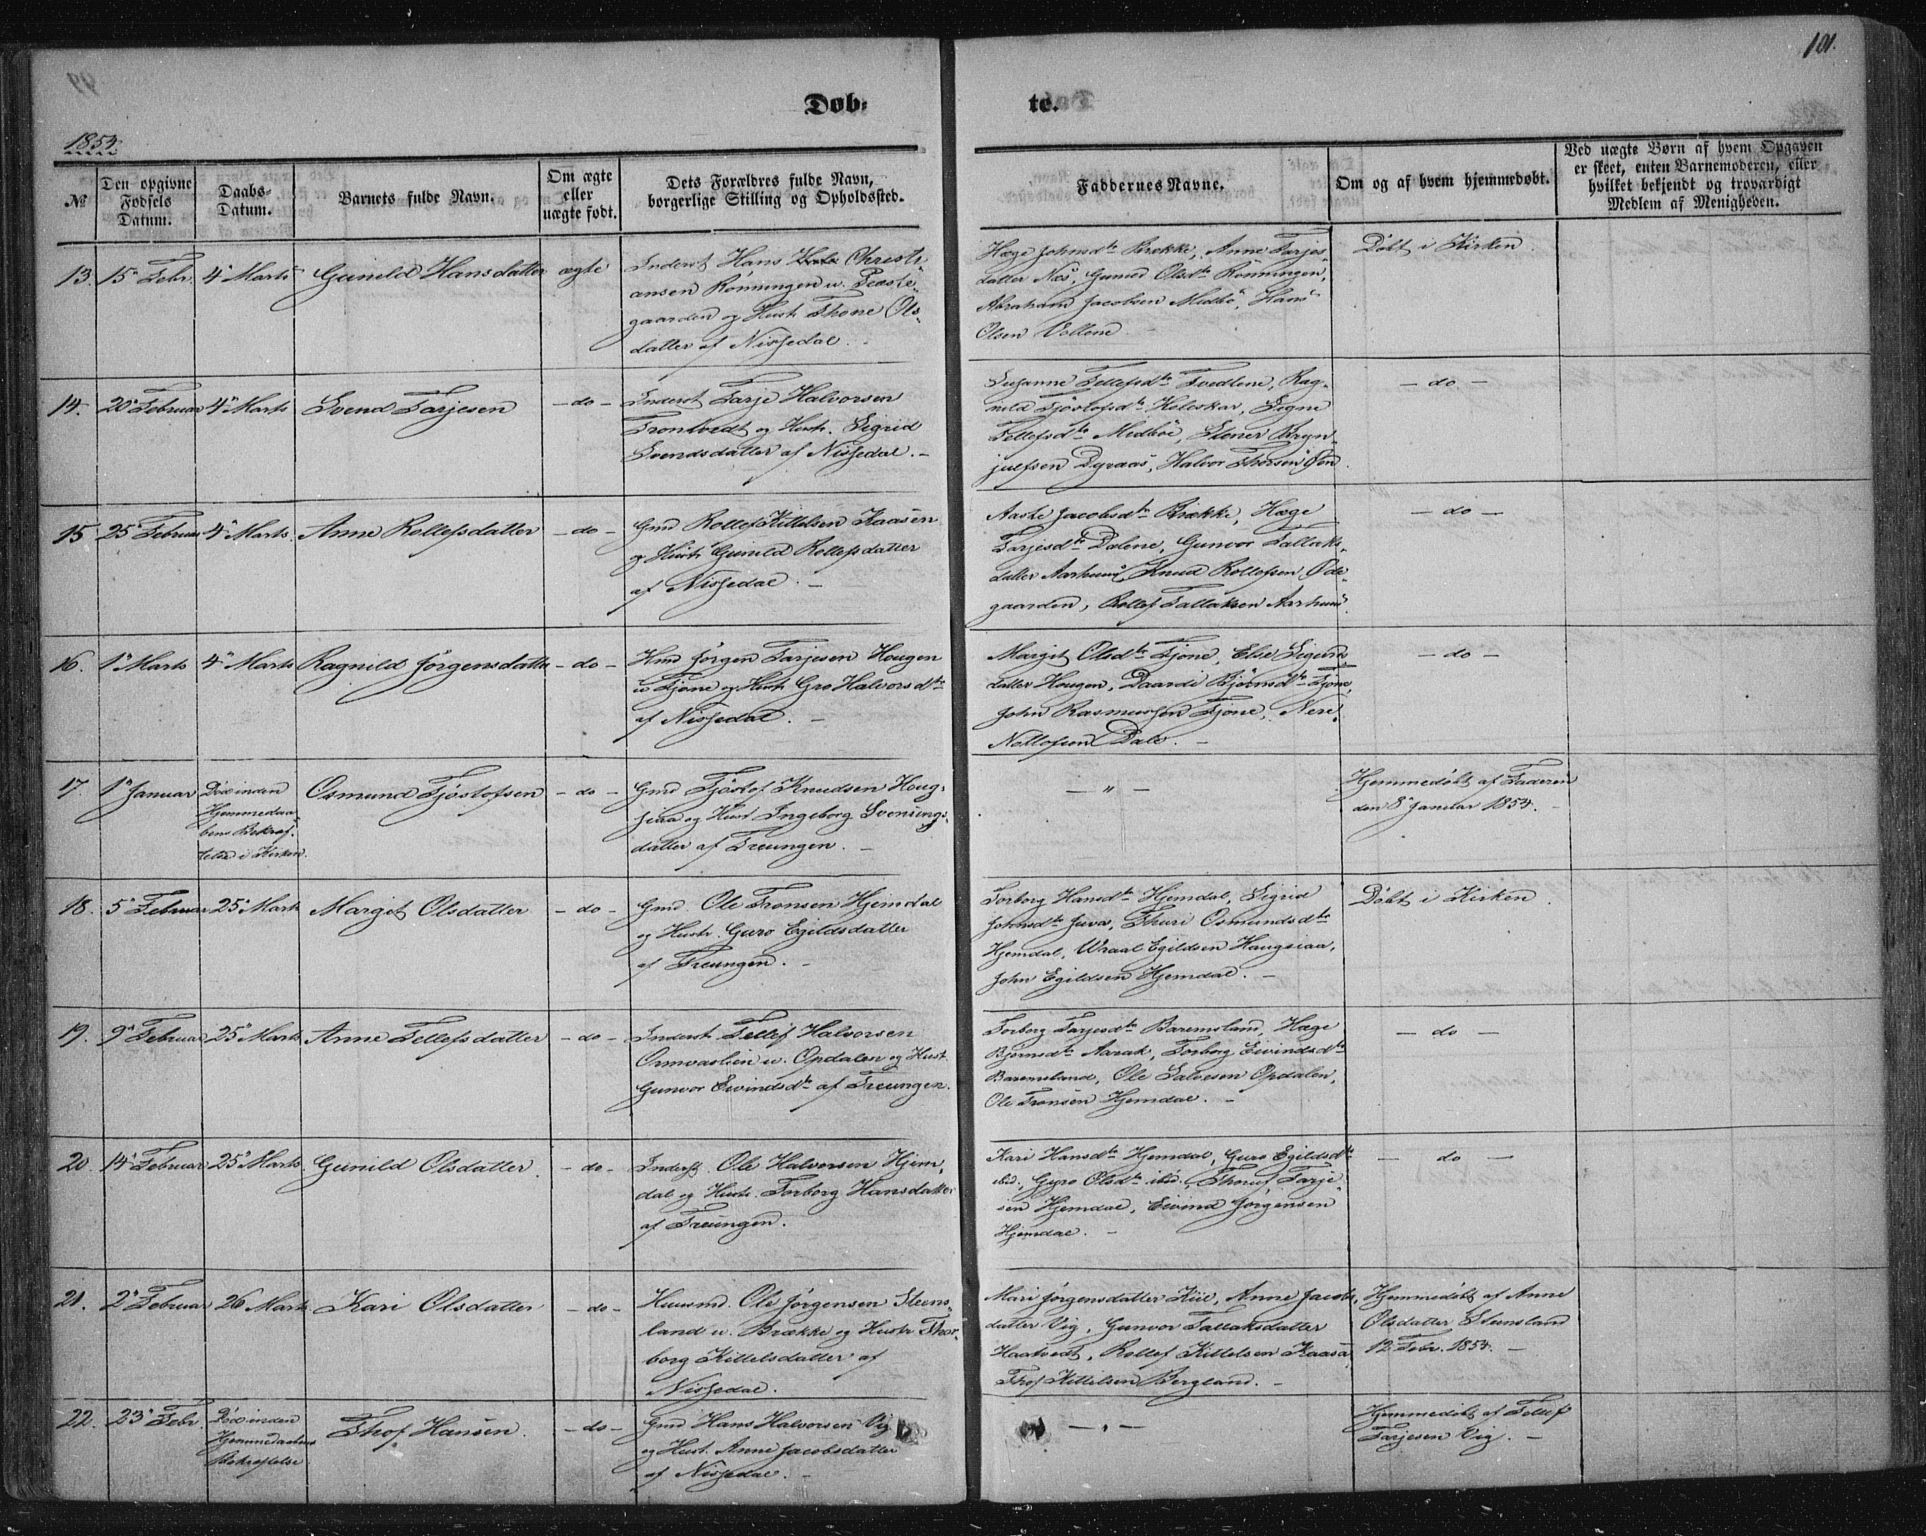 101.
Døb-
te.
1854.
No
Den opgivne
Fødsels
Datum.
Daabs-
Datum.
Barnets fulde Navn.
Om ægte
eller
uægte født.
Dets Forældres fulde Navn,
borgerlige Stilling og Opholdssted.
Faddernes Navne.
Om og af hvem hjemmedøbt.
Ved uægte Børn af hvem Opgaven
er skeet, enten Barnemoderen, eller
hvilket bekjendt og troværdigt
Medlem af Menigheden.
13.
15 Febr.
4 Marts
Gunild Hansdatter
ægte
Inderst Hans Christi-
ansen Rönningen u. Præste-
gaarden og Hust. Thone Ols-
datter af Nissedal. –
Hæge Johnsdtr Brække, Anne Tarjes-
datter Næs, Olsdtr Rönningen,
Abraham Jacobsen Midbö, Hans
Olsen Vollene
Döbt i Kirken
14.
20 Februar
4 Marts
Svend Tarjesen
– do –
Inderst Tarje Halvorsen
Trontvedt og Hustr. Sigrid
Svendsdatter af Nissedal. –
Susanne Tellefsdtr Tvedtene, Rag-
nild Tjöstofsdtr Heleskar, Signe
Tellefsdtr Midböe, Stener Bryn-
julfsen Dyraas, Halvor Thorsen Öen.
– do –
15.
25 Februar
4 Marts.
Anne Rollefsdatter
– do –
Gmd Rollef Kittelsen Kaasen
og Hustr Gunild Rollefsdatter
af Nissedal. –
Aaste Jacobsdtr Brække, Hæge
Tarjesdtr Dalene, Gunvor Tallaks-
datter Aarhuus, Knud Rollefsen Öde-
gaarden, Rollef Tallaksen Aarhuus.
– do –
16.
1 Marts
4 Marts
Ragnild Jörgensdatter
– do –
Hmd Jörgen Tarjesen Hougen
u Tjöne og Hust Gro Halvorsdtr
af Nissedal. –
Margit Olsdtr Tjöne, Else Sigurd-
datter Hougen, Daarde Björnsdtr Tjöne,
John Rasmussen Tjöne, Nere
Nottofsen Dale. –
– do –
17.
1 Januar
Död inden
Hjemmedaa-
bens Bekræf-
telse i Kirken.
Osmund Tjöstofsen
– do –
Gmd Tjöstof Knudsen Houg-
siaa og Hust Ingeborg Svenungs-
datter af Treungen. –
– " –
Hjemmedöbt af Faderen
den 8 Januar 1854. –
18.
5 Februar
25 Marts
Margit Olsdatter
– do –
Gmd. Ole Tronsen Hjemdal
og Hustr. Guro Egildsdatter
af Treungen. –
Torborg Hansdtr Hjemdal, Sigrid
Johnsdtr Juvas, Thuri Osmundsdtr
Hjemdal, Wraal Egildsen Haugsiaa,
John Egildsen Hjemdal. –
Döbt i Kirken.
19.
9 Februar
25 Marts
Anne Tellefsdatter
– do –
Inderst. Tellef Halvorsen
Ormvaslien u. Opdalen og Hust.
Gunvor Eivindsdtr af Treungen.
Torborg Tarjesdtr Baremsland, Hæge
Björnsdtr Aarak, Torborg Eivindsdtr
Baremsland, Ole Salvesen Opdalen,
Ole Tronsen Hjemdal. –
– do –
20.
14 Februar
25 Marts
Gunild Olsdatter.
– do –
Inderst. Ole Halvorsen Hjem-
dal og Hustr. Torborg Hansdatter
af Treungen.
Kari Hansdtr Hjemdal, Guro Egildsdtr
ibid., Gyro Olsdtr ibid., Tarje-
sen Hjemdal, Eivind Jörgensen
Hjemdal. –
– do –
21.
2 Februar
26 Marts
Kari Olsdatter
– do –
Huusmd. Ole Jörgensen Steens-
land u. Brække og Hustr Thor-
borg Kittelsdatter af
Nissedal.
Mari Jörgensdatter Kiil, Anne Jacobs-
datter Vig, Gunvor Tallaksdatter
Haatvedt, Rollef Kittelsen Kaasa
Thof Kittelsen Bergland. –
Hjemmedöbt af Anne
Olsdatter Stensland
12 Febr. 1854. –
22.
23 Febr.
Död inden
Hjemmedaabens
Bekræftelse
Thof Hansen.
– do –
Gmd Hans Halvorsen Vig
og Hust. Anne Jacobsdatter
af Nissedal. –
– " –
Hjemmedöbt af Tellef
Tarjesen Vig. –